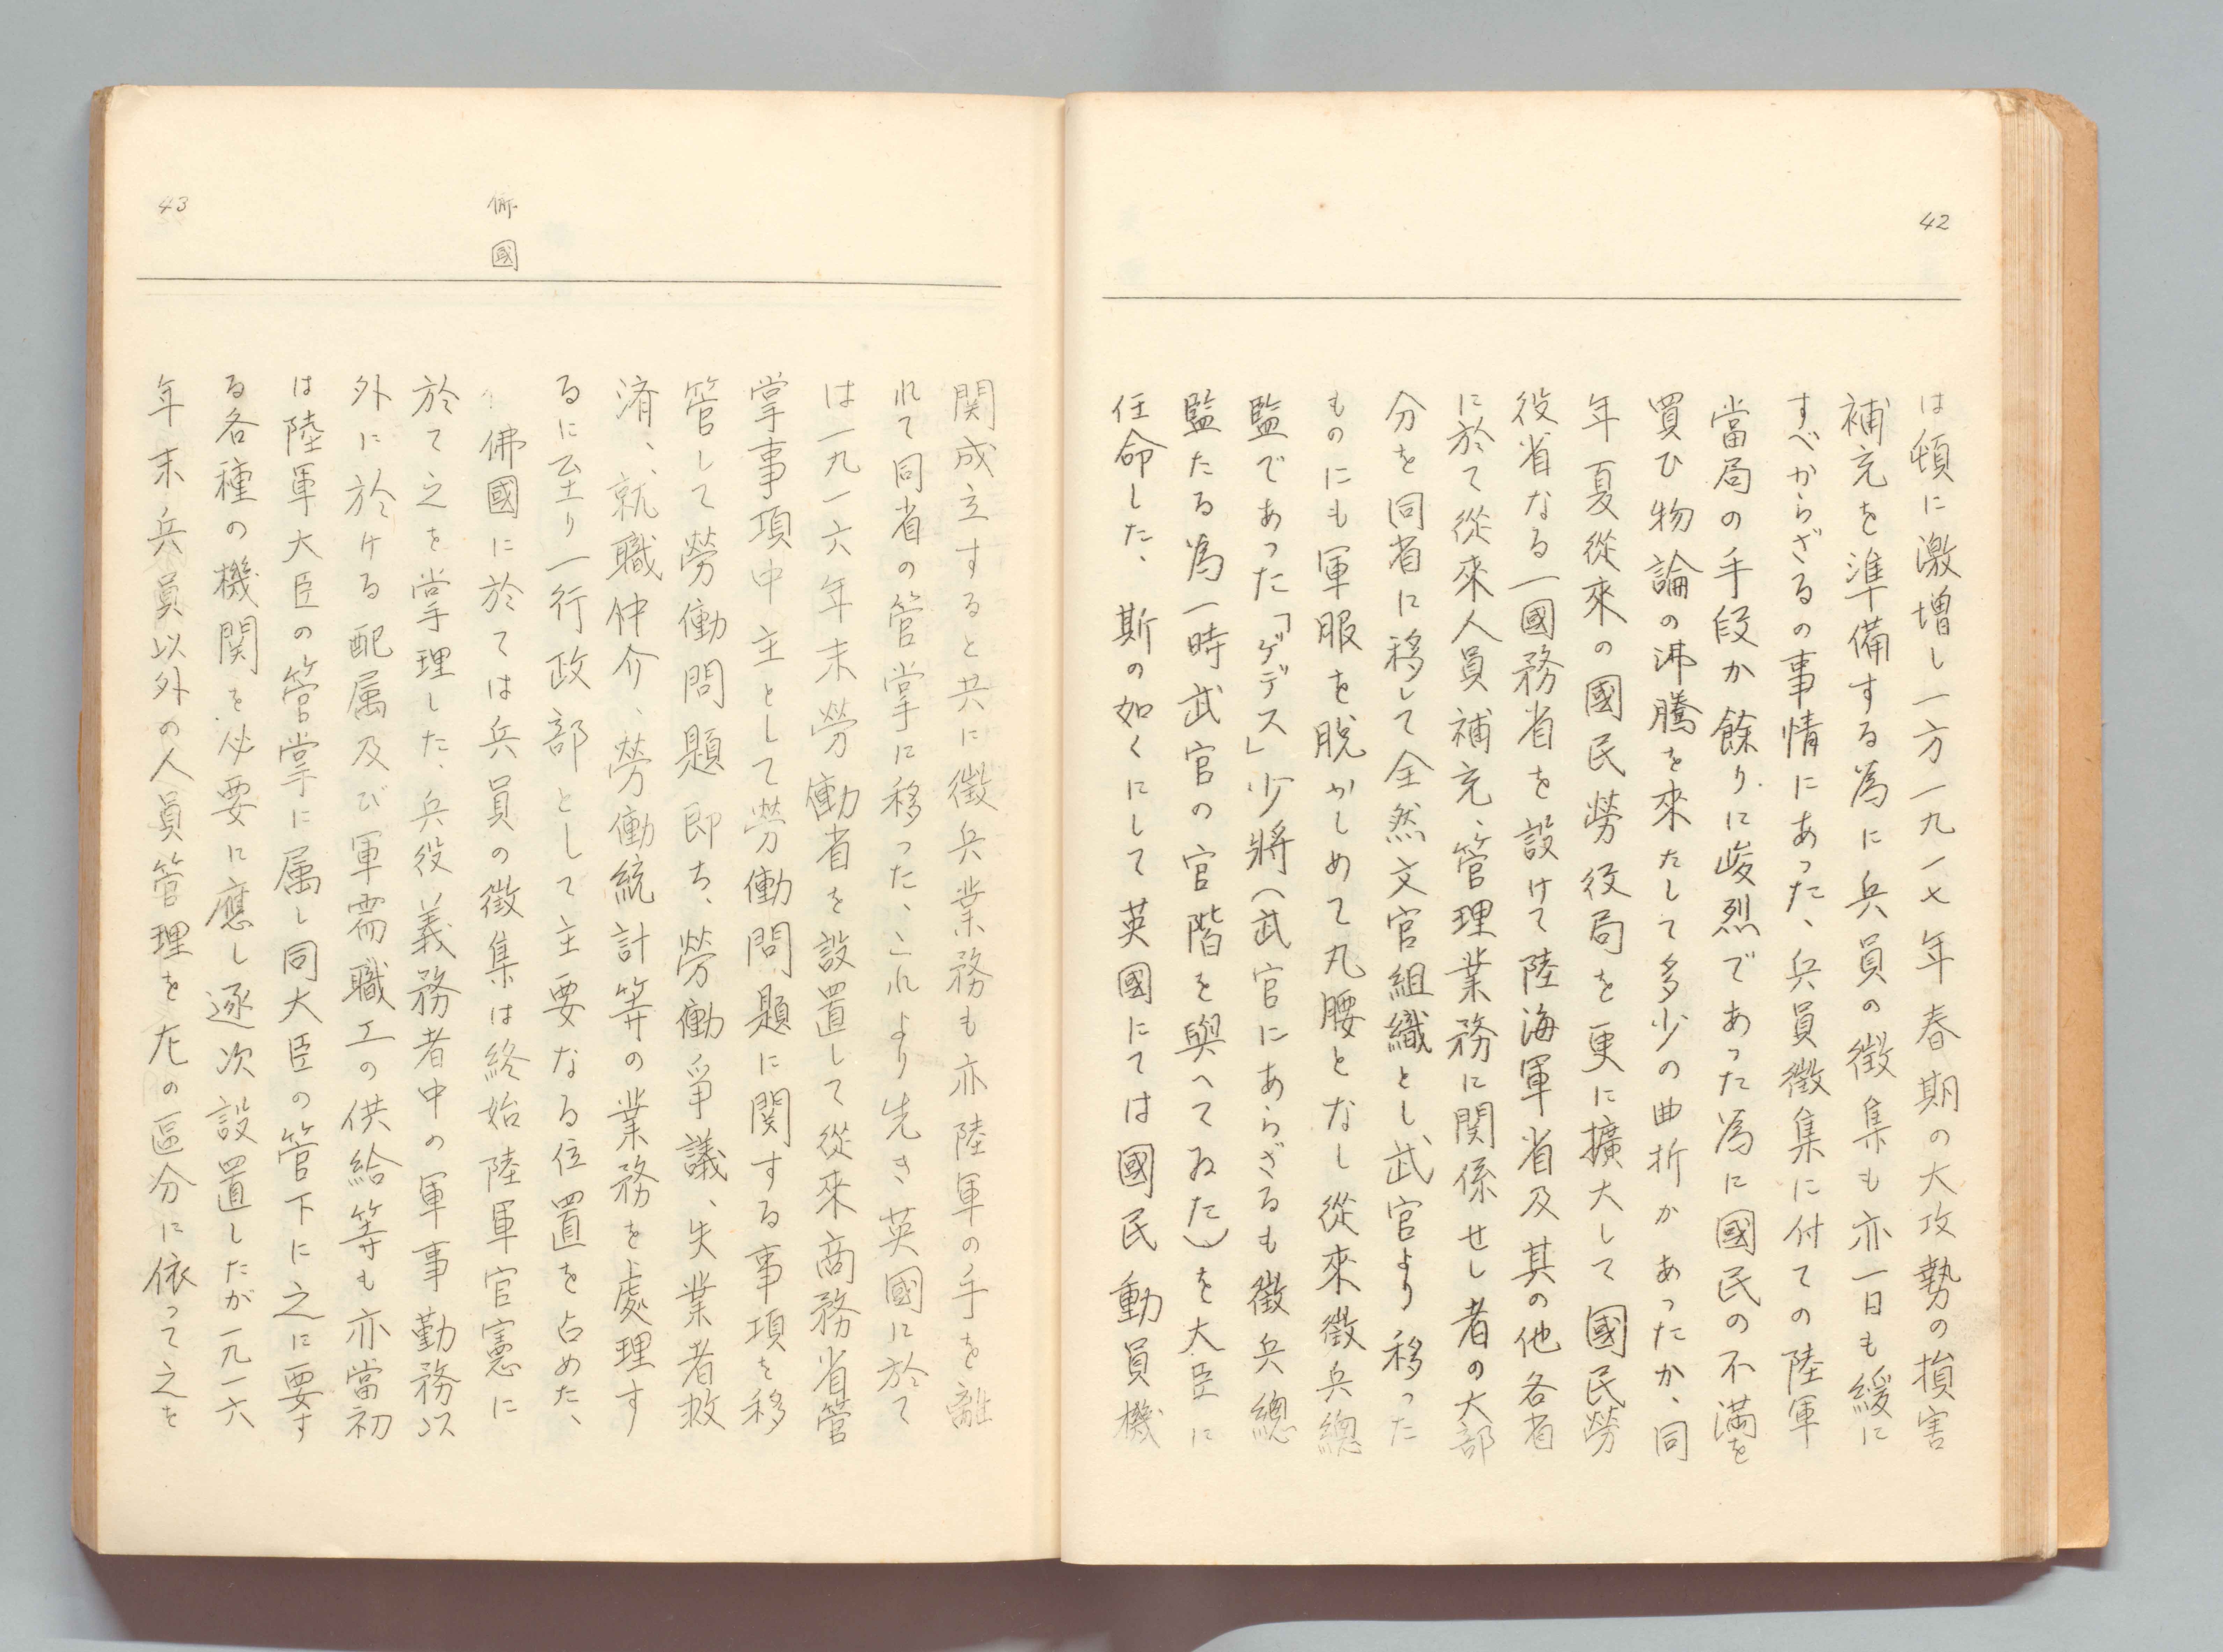 42
は頓に激増し一方一九一七年春期の大攻勢の損害
補充を準備する為に兵員の徴集も亦一日も緩に
すべからざるの事情にあった、兵員徴集に付ての陸軍
當局の手段か餘りに峻烈であった為に國民の不満を
買ひ物論の沸騰を來たして多少の曲折かあったか、同
年夏從來の國民勞役局を更に擴大して國民勞
役省なる一國務省を設けて陸海軍省及其の他各省
に於て從來人員補充、管理業務に関係せし者の大部
分を同省に移して全然文官組織とし武官より移った
ものにも軍服を脱かしめて丸腰となし從來徴兵總
監であった「ゲデス」少將(武官にあらざるも徴兵總
監たる為一時武官の官階を與へてゐた)を大臣に
任命した、斯の如くにして英國にては國民動員機
43
佛
國
関成立すると共に徴兵業務も亦陸軍の手を離
れて同省の管掌に移った、これより先き英國に於て
は一九一六年末勞働省を設置して從來商務省管
掌事項中主として勞働問題に関する事項を移
管して勞働問題即ち、勞働爭議、失業者救
済、就職仲介、勞働統計等の業務を處理す
るに至り一行政部として主要なる位置を占めた、
佛國に於ては兵員の徴集は終始陸軍官憲に
於て之を掌理した、兵役義務者中の軍事勤務以
外に於ける配属及び軍需職工の供給等も亦當初
は陸軍大臣の管掌に属し同大臣の管下に之に要す
る各種の機関を必要に應し逐次設置したが一九一六
年末兵員以外の人員管理を左の區分に依って之を